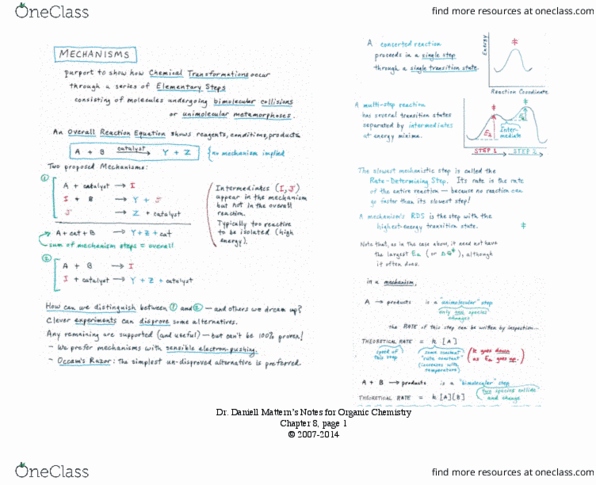 OneClass
find more resources at oneclass.com
MECHANISMS
purport to show how Chemical Transformations occur
through a series of Elementary Steps
consisting of molecules undergoing bimolecular collisions
or unimolecular metamorphoses.
An Overall Reaction Equation shows reagents, conditions, products
A + B catalyst→ Y + Z {no mechanism implied
Two proposed Mechanisms:
①
A + catalyst → I
I + B → Y + J
J → Z + catalyst
A + cat + B → Y + Z + cat
sum of mechanism steps = overall
Intermediates (I, J)
appear in the mechanism
but not in the overall
reaction.
Typically too reactive
to be isolated (high
energy).
②
A + B → I
I + catalyst → Y + Z + catalyst
How can we distinguish between ① and ② — and others we dream up?
Clever experiments can disprove some alternatives.
Any remaining are supported (and useful) — but can't be 100% proven!
- We prefer mechanisms with sensible electron-pushing.
- Occam's Razor: the simplest un-disproved alternative is preferred
A concerted reaction
proceeds in a single step
through a single transition state.
Energy
‡
Reaction Coordinate
A multi-step reaction
has several transition states
separated by intermediates
at energy minima.
‡
Ea
Ea
Inter-
mediate
STEP 1 STEP 2
The slowest mechanistic step is called the
Rate-Determining Step. Its rate is the rate
of the entire reaction — because no reaction can
go faster than its slowest step!
A mechanism's RDS is the step with the
highest-energy transition state. ‡
Note that, as in the case above, it need not have
the largest Ea (or ΔG‡), although
it often does.
in a mechanism,
A → products is a "unimolecular" step
only one species
changes
the RATE of this step can be written by inspection.
THEORETICAL RATE = k [A]
speed of
this step
some constant
"rate constant"
(increases with
temperature)
(k goes down
as Ea goes up.)
A + B → products is a "bimolecular" step
two species collide
and change
THEORETICAL RATE = k [A][B]
Dr. Daniell Mattern's Notes for Organic Chemistry
Chapter 8, page 1
© 2007-2014
OneClass
find more resources at oneclass.com